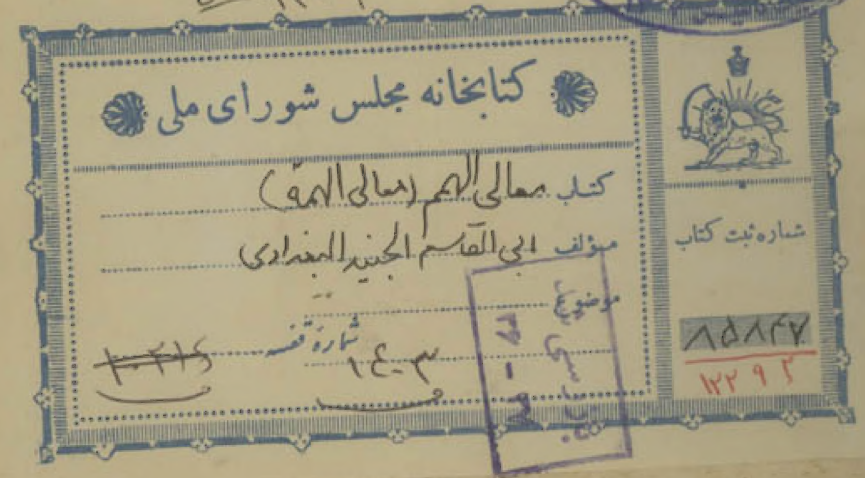 کتابخانه مجلس شورای ملی
کتاب معالی الهمم (معالی الهمة)
مؤلف ابی القاسم الجنید البغدادی
موضوع
شماره قفسه ۱۴۰۳
شماره ثبت کتاب
۸۵۸۴۷
۱۲۲۹۲